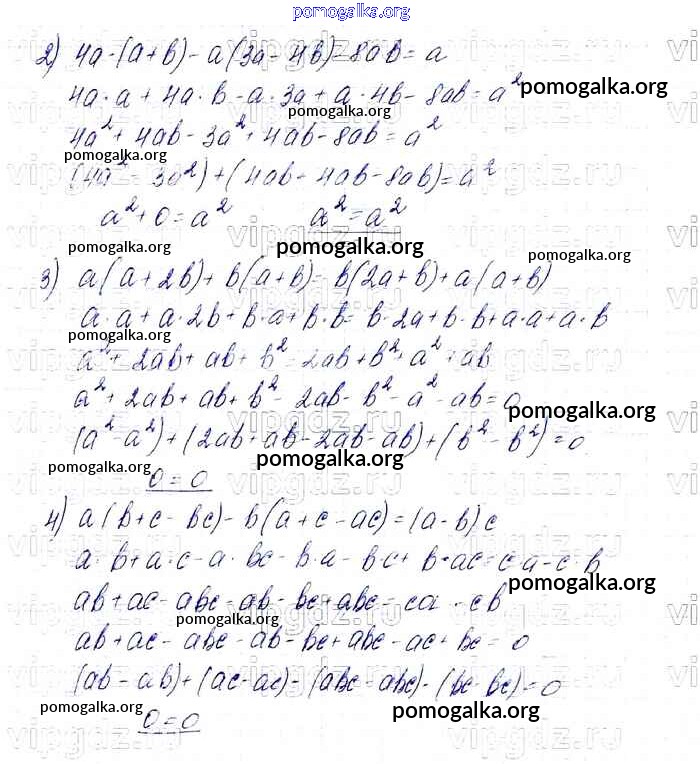 pomogalka.org
2) 4a·(a+b)-a(3a-4b)-8ab=a
4a·a+4a·b-a·3a+a·4b-8ab=a²
pomogalka.org
4a²+4ab-3a²+4ab-8ab=a²
pomogalka.org
(4a²-3a²)+(4ab-4ab-8ab)=a²
a²+0=a² a²=a²
pomogalka.org pomogalka.org pomogalka.org
3) a(a+2b)+b(a+b)=b(2a+b)+a(a+b)
a·a+a·2b+b·a+b·b=b·2a+b·b+a·a+a·b
pomogalka.org
a²+2ab+ab+b²=2ab+b²+a²+ab
a²+2ab+ab+b²-2ab-b²-a²-ab=0
pomogalka.org
(a²-a²)+(2ab+ab-2ab-ab)+(b²-b²)=0
pomogalka.org pomogalka.org
0=0
4) a(b+c-bc)-b(a+c-ac)=(a-b)c
a·b+a·c-a·bc-b·a-bc+b·ac=c·a-c·b
pomogalka.org
ab+ac-abc-ab-bc+abc=ca-cb
pomogalka.org
ab+ac-abc-ab-bc+abc-ac+bc=0
(ab-ab)+(ac-ac)-(abc-abc)-(bc-bc)=0
pomogalka.org pomogalka.org
0=0